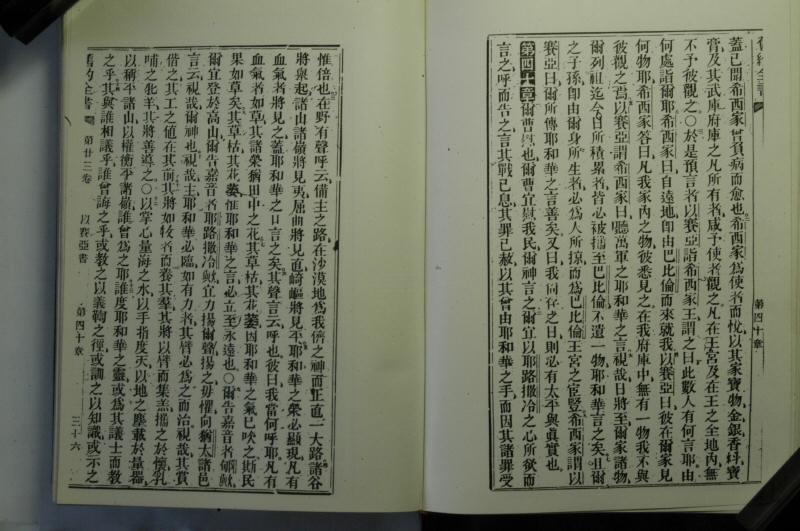 舊約全書
第四十章
蓋已聞希西家曾負病而愈也希西家爲使者而悅以其家寶物金銀香料寶
膏及其武庫府庫之凡所有者咸予使者觀之凡在王宮及在王之全地內無
不予彼觀之〇於是預言者以賽亞詣希西家王謂之曰此數人有何言耶由
何處詣爾耶希西家曰自遠地卽由巴比倫而來就我以賽亞曰彼在爾家見
何物耶希西家答曰凡我家內之物彼悉見之在我府庫中無有一物我不與
彼觀之焉以賽亞謂希西家曰聽萬軍之耶和華之言視哉日將至爾家諸物
爾列祖迄今日所積累者皆必被擄至巴比倫不遺一物耶和華言之矣且爾
之子孫卽由爾身所生者必爲人所掠而爲巴比倫王宮之宦豎希西家謂以
賽亞曰爾所傳耶和華之言善矣又曰我尚存之日則必有太平與眞實也
第四十章 爾曹其慰也爾曹宜慰我民爾神言之爾宜以耶路撒冷之心所欲而
言之呼而告之言其戰已息其罪已赦以其曾由耶和華之手而因其諸罪受
惟倍也在野有聲呼云備主之路在沙漠地爲我儕之神而正直一大路諸谷
將舉起諸山諸嶺將見夷屈曲將見直崎嶇將見平耶和華之榮必顯現凡有
血氣者將見之蓋耶和華之口言之矣其聲言云呼也彼曰我當何呼耶凡有
血氣者如草其諸榮猶田中之花其草枯其花萎因耶和華之氣已吹之斯民
果如草矣其草枯其花萎惟耶和華之言必立至永遠也〇爾告嘉音者郇歟
爾宜登於高山爾告嘉音者耶路撒冷歟宜力揚爾聲揚之毋懼向猶太諸邑
言云視哉爾神也視哉主耶和華必臨如有力者其臂必爲之而治視哉其賞
偕之其工之値在其前其將如牧者而養其羣其將以臂而集羔攜之於懷乳
哺之牝羊其將善導之〇以掌心量海之水以手指度天以地之塵載於量器
以稱平諸山以權衡平諸嶺誰曾爲之耶誰度耶和華之靈或爲其議士而教
之乎其與誰和議乎誰曾誨之乎或教之以義鞫之徑或訓之以知識或示之
舊約全書
第廿三卷
以賽亞書
第四十章
三十六